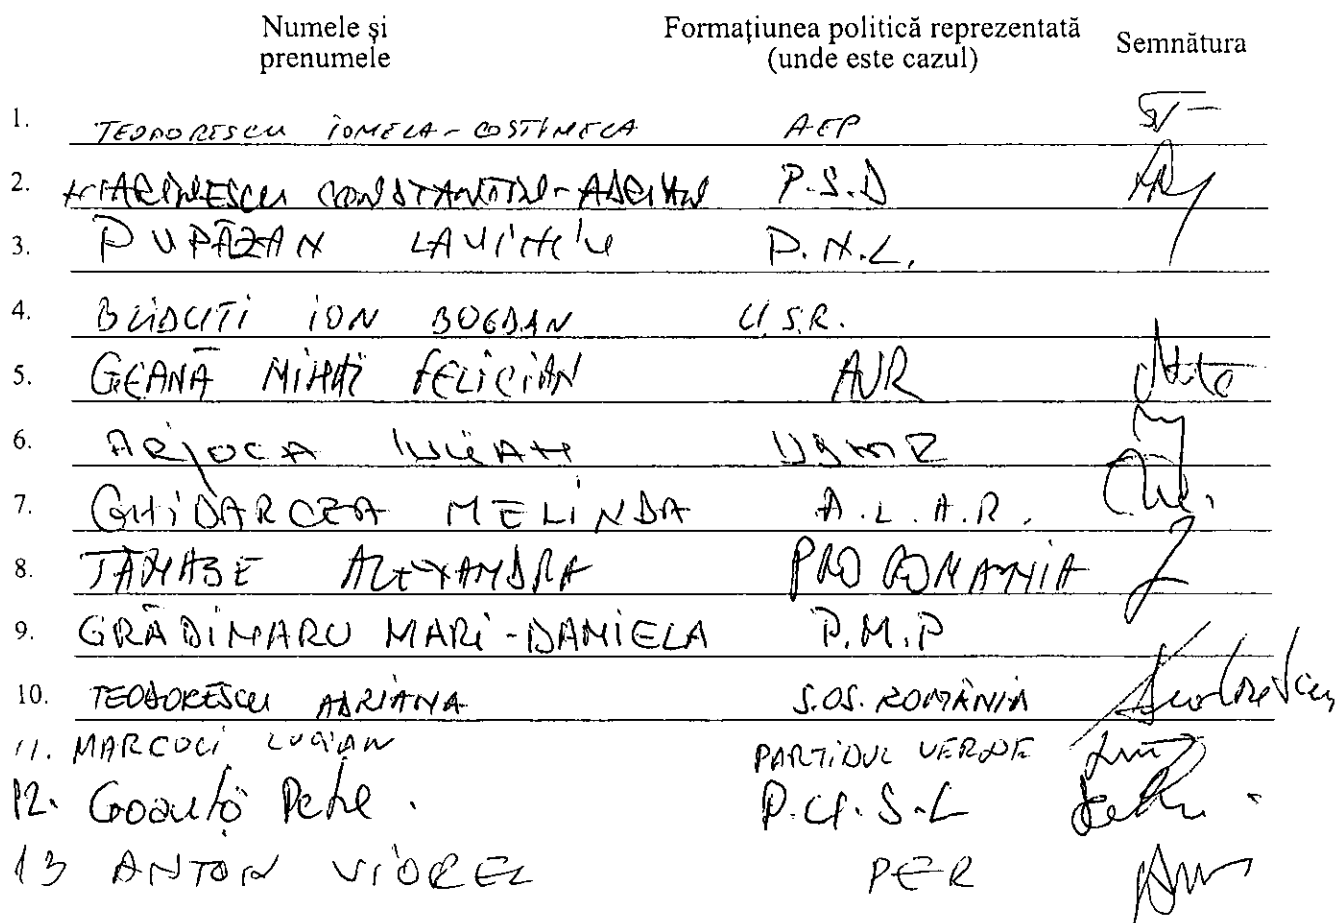 Numele și prenumele Formațiunea politică reprezentată (unde este cazul) Semnătura
1. TEODORESCU IONELA-COSTINELA AEP
2. MARINESCU CONSTANTIN-ADRIAN P.S.D
3. PUPĂZAN LAVINIU P.N.L.
4. BLIDUTI ION BOGDAN U.S.R.
5. GEANĂ MIHAI FELICIAN AUR
6. ARJOCA IULIAN UDMR
7. GHIDARCEA MELINDA A.L.A.R.
8. TĂNASE ALEXANDRA PRO ROMANIA
9. GRĂDINARU MARI-DANIELA P.M.P
10. TEODORESCU ADRIANA S.OS. ROMÂNIA
11. MARCOCI LUCIAN PARTIDUL VERDE
12. Petre. P.U.S.L
13 ANTON VIOREL PER